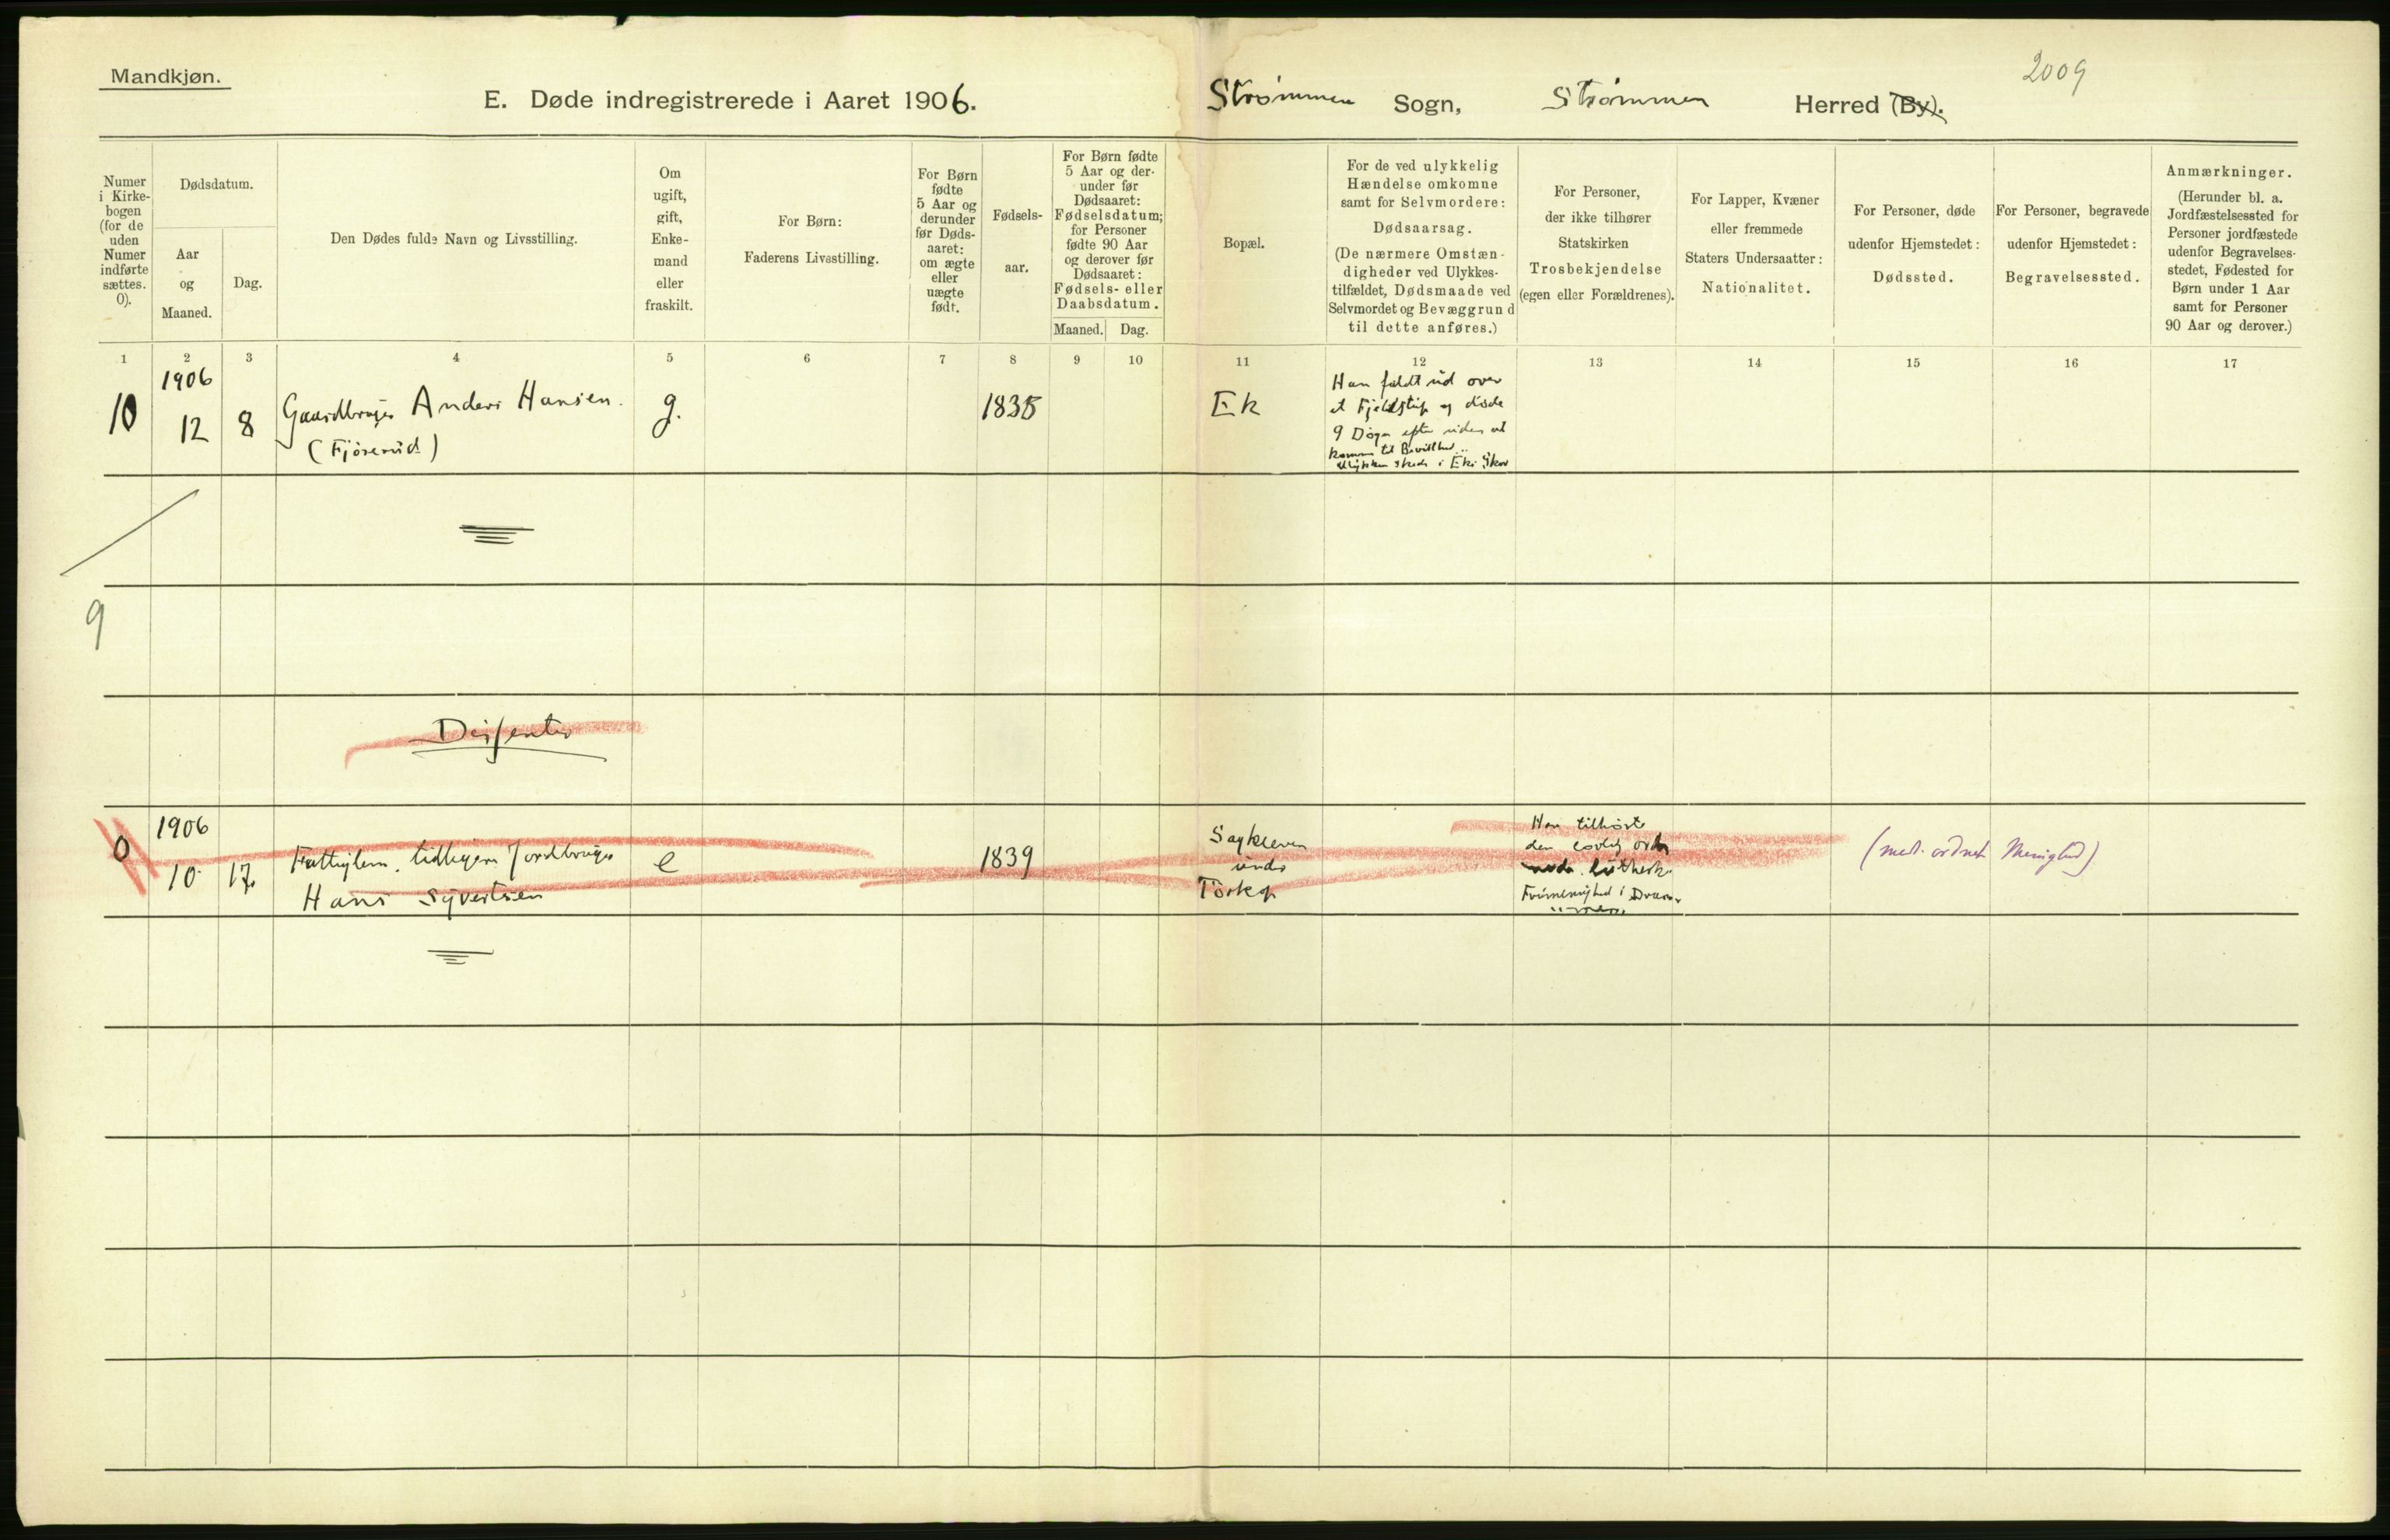 Mandkjøn.
E. Døde indregistrerede i Aaret 1906.
Strømmen Sogn, Strømmen Herred (By).
2009
Numer i Kirkebogen (for de uden Numer indførte sættes. 0).
Dødsdatum.
Aar og Maaned.
Dag.
Den Dødes fulde Navn og Livsstilling.
Om ugift, gift, Enkemand eller fraskilt.
For Børn:
Faderens Livsstilling.
For Børn fødte 5 Aar og derunder før Dødsaaret: om ægte eller uægte født.
Fødselsaar.
For Børn fødte 5 Aar og derunder før Dødsaaret: Fødselsdatum; for Personer fødte 90 Aar og derover før Dødsaaret: Fødsels- eller Daabsdatum.
Maaned. Dag.
Bopæl.
For de ved ulykkelig Hændelse omkomne samt for Selvmordere:
Dødsaarsag.
(De nærmere Omstændigheder ved Ulykkestilfældet, Dødsmaade ved Selvmordet og Bevæggrund til dette anføres.)
For Personer, der ikke tilhører Statskirken
Trosbekjendelse
(egen eller Forældrenes).
For Lapper, Kvæner eller fremmede Staters Undersaatter:
Nationalitet.
For Personer, døde udenfor Hjemstedet:
Dødssted.
For Personer, begravede udenfor Hjemstedet:
Begravelsessted.
Anmærkninger.
(Herunder bl. a. Jordfæstelsessted for Personer jordfæstede udenfor Begravelsesstedet, Fødested for Børn under 1 Aar samt for Personer 90 Aar og derover.)
1 2 3 4 5 6 7 8 9 10 11 12 13 14 15 16 17
1906
10 12 8 Gaardbruger Anders Hansen. g. 1835 Ek
(Fjøserud)
Han faldt ud over
et Fjeldstip og døde
9 Døgn efter uden at
komme til Bevidsthed.
Ulykken skede i Eks Skov
9
Dissenter
1906
0 10 17 tidligere Jordbruger
Hans Syvertsen
e 1839
under
Han tilhørte
den
luthersk
Frimenighed i Dram-
men.
(med. ordnet Menighed)